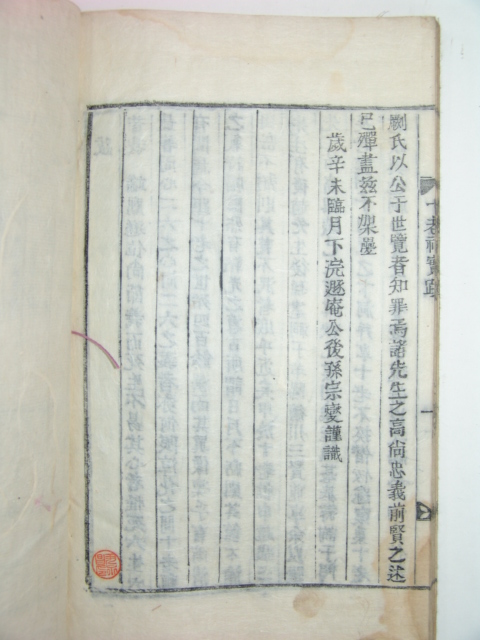 剞氏以公于世覽者知罪焉諸先生之高尙忠義前賢之述
已殫盡玆不架疊
歲辛未臨月下浣遯庵公後孫宗燮謹識
十老祠實蹟
一